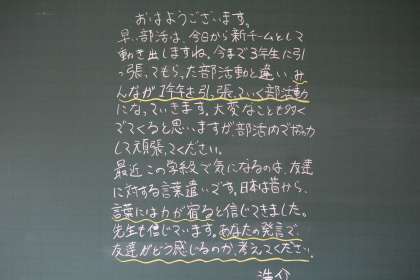 おはようございます。
早い部活は、今日から新チームとして
動き出しますね。今まで3年生に引
っ張ってもらった部活動と違い、み
んなが1年生を引っ張っていく部活動
になっていきます。大変なことも多く
でてくると思いますが、部活内で協力
して頑張ってください。
最近この学級で気になるのは、友達
に対する言葉遣いです。日本は昔から、
言葉には力が宿ると信じてきました。
先生も信じています。あなたの発言で、
友達がどう感じるのか、考えてください。
浩介